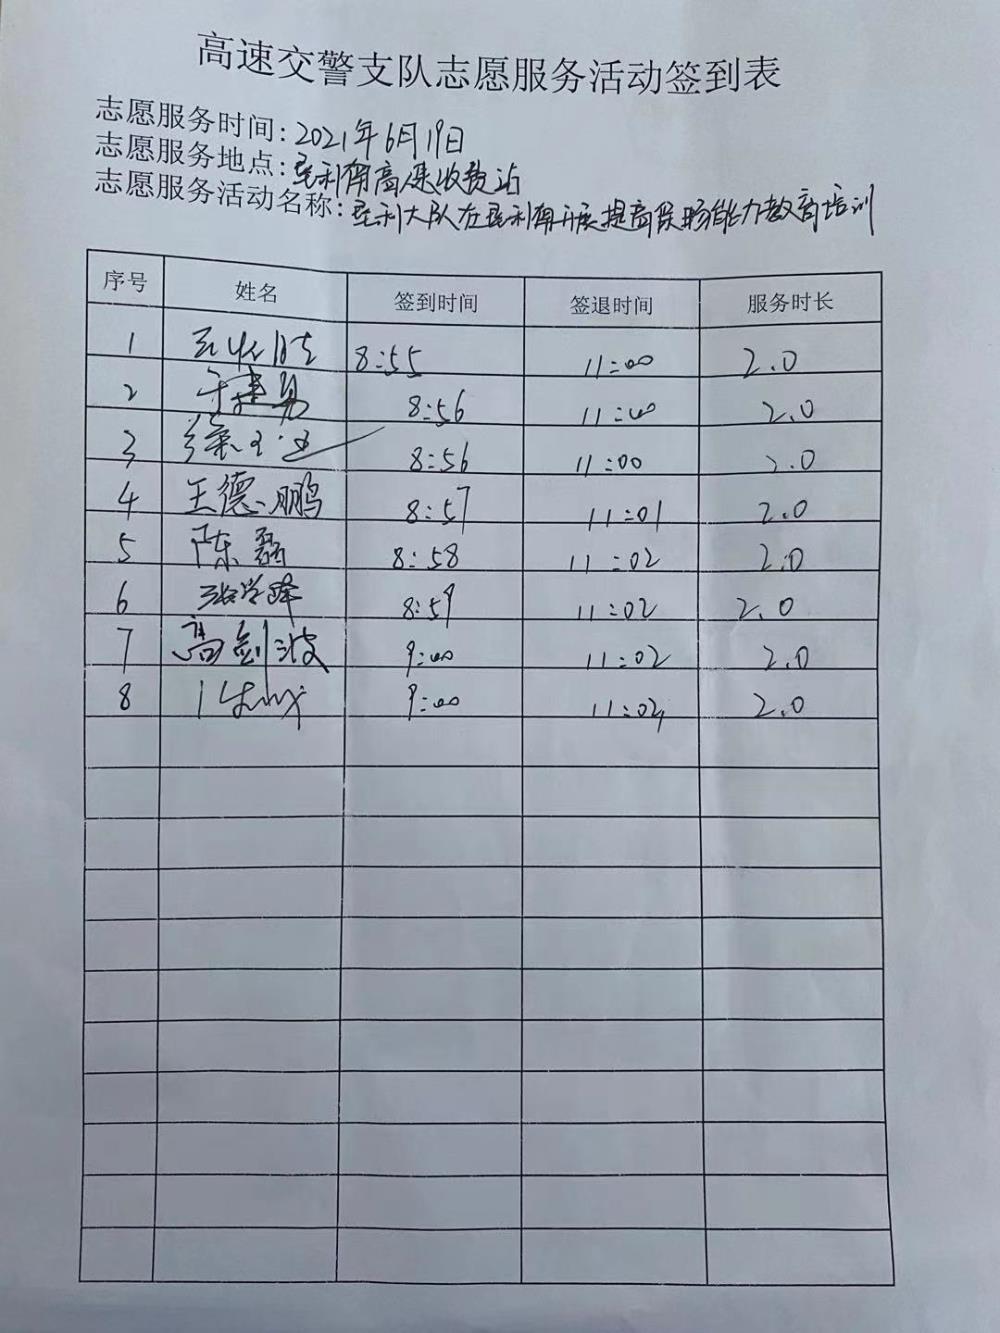 高速交警支队志愿服务活动签到表
志愿服务时间: 2021年6月19日
志愿服务地点: 垦利南高速收费站
志愿服务活动名称: 垦利大队在垦利南开展提高履职能力教育培训
序号 姓名 签到时间 签退时间 服务时长
1 8:55 11:00 2.0
2 8:56 11:00 2.0
3 8:56 11:00 2.0
4 王德鹏 8:57 11:01 2.0
5 陈磊 8:58 11:02 2.0
6 8:59 11:02 2.0
7 高剑波 9:00 11:02 2.0
8 9:00 11:02 2.0